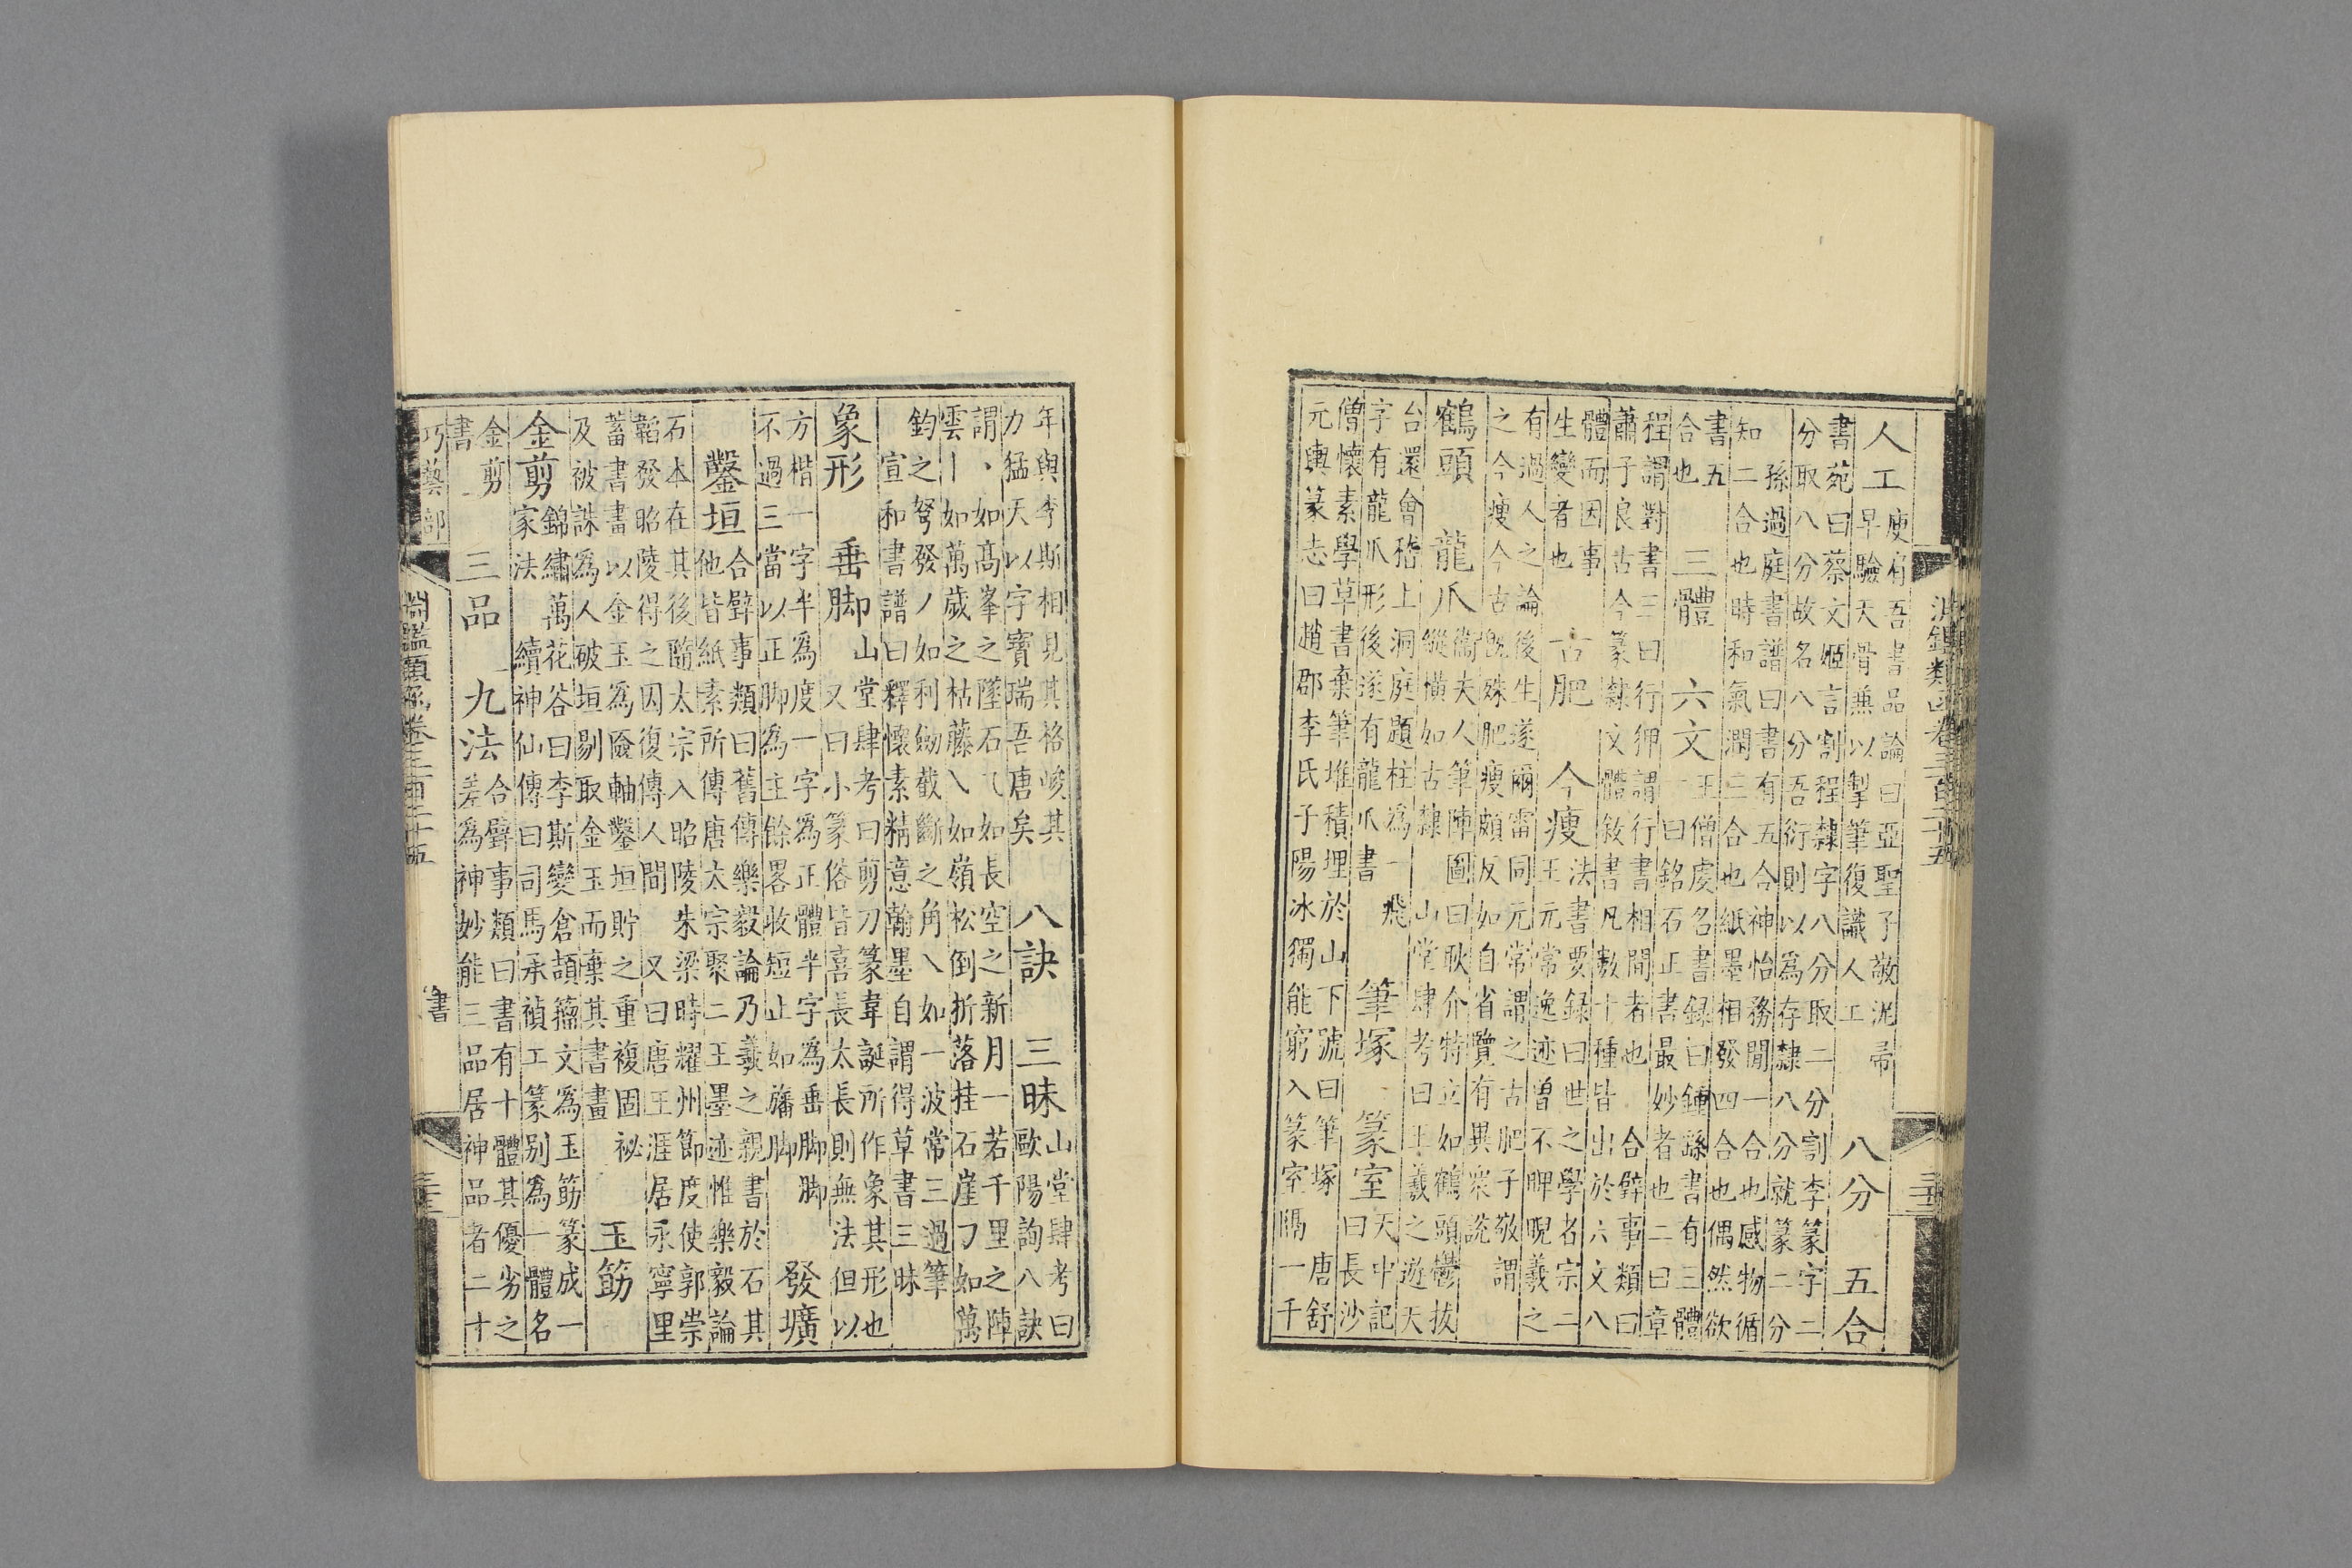 人工
庾肩吾書品論曰亞聖子敬泥帚
早驗天骨兼以掣筆復識人工
八分
五合
書苑曰蔡文姬言割程隸字八分取二分割李篆字二
分取八分故名八分吾衍則以爲存隸八分就篆二分
孫過庭書譜曰書有五合神怡務閒一合也感物循
知二合也時和氣潤三合也紙墨相發四合也偶然欲
書五
合也
三體
六文
王僧虔名書録曰鍾繇書有三體
一曰銘石正書最妙者也二曰章
程謂對書三曰行狎謂行書相間者也 合辟事類曰
蕭子良古今篆隸文體敘書凡數十種皆出於六文八
體而因事
生變者也
古肥
今瘦
法書要録曰世之學者宗二
王元常逸迹曽不睥睨羲之
有過人之論後生遂爾雷同元常謂之古肥子敬謂
之今瘦今古旣殊肥瘦頗反如自省覽有異衆說
鶴頭
龍爪
衞夫人筆陣圖曰耿介特立如鶴頭鬱拔
縱橫如古隸 山堂肆考曰王羲之遊天
台還會稽上洞庭題柱爲一飛
字有龍爪形後遂有龍爪書
筆塚
篆室
天中記
曰長沙
僧懷素學草書棄筆堆積埋於山下號曰筆塚 唐舒
元輿篆志曰趙郡李氏子陽冰獨能窮入篆室隔一千
年與李斯相見其格峻其
力猛天以字寶瑞吾唐矣
八訣
三昧
山堂肆考曰
歐陽詢八訣
謂丶如高峯之墜石乀如長空之新月一若千里之陣
雲丨如萬歲之枯藤乀如嶺松倒折落挂石崖刀如萬
鈞之弩發丿如利劒截斷之角乀如一波常三過筆
宣和書譜曰釋懷素精意翰墨自謂得草書三昧
象形
垂脚
山堂肆考曰剪刀篆韋誕所作象其形也
又曰小篆俗皆喜長太長則無法但以
方楷一字半爲度一字爲正體半字爲垂脚脚
不過三當以正脚爲主餘畧收短止如旛脚
發壙
鑿垣
合辟事類曰舊傳樂毅論乃羲之親書於石其
他皆紙素所傳唐太宗聚二王墨迹惟樂毅論
石本在其後隨太宗入昭陵朱梁時耀州節度使郭崇
韜發昭陵得之囚復傳人間 又曰唐王涯居永寧里
蓄書書以金玉爲匳軸鑿垣貯之重複固祕
及被誅爲人破垣剔取金玉而棄其書畫
玉筯
金剪
錦繡萬花谷曰李斯變倉頡籀文爲玉筯篆成一
家法 續神仙傳曰司馬承禎工篆别爲一體名
金剪
書
三品
九法
合辟事類曰書有十體其優劣之
差爲神妙能三品居神品者二十
巧藝部
淵鑑類函卷三百二十五
書